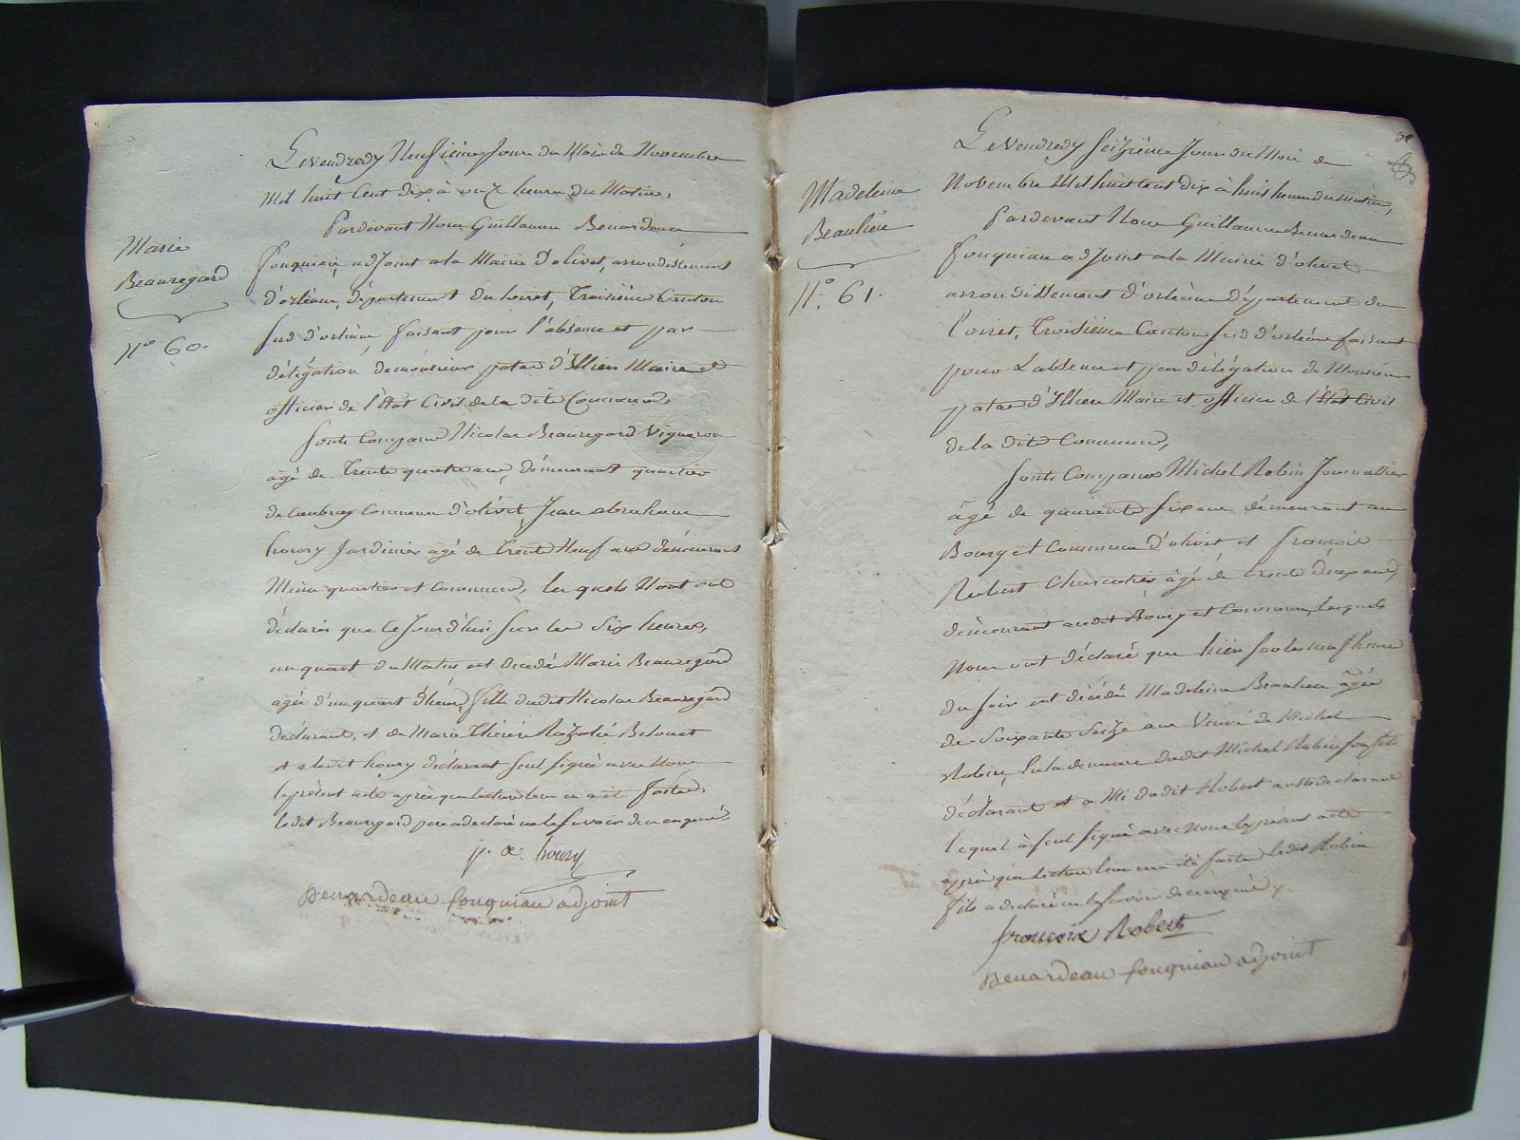 Marie
Beauregard
N.º 60.
Le Vendredy Neufvieme Jour du Mois de Novembre
Mil huit Cent dix à onze heure du Matin,
Pardevant Nous Guillaume Benardeau
fouquiau, adjoint a la Mairie D'olivet, arrondissement
d'orléans, département du Loiret, Troisiéme Canton
Sud d'orléans, faisant pour l'absence et par
délégation de monsieur patas d'Illiers Maire et
officier de l'état Civil de la dite Commune,
Sont Comparus Nicolas Beauregard Vigneron
âgé de Trente quatre ans, demeurant quartier
de Caubray Commune d'olivet, Jean abraham
houry Jardinier agé de Trente Neuf ans demeurant
Même quartier et Commune, les quels Nont ont
déclarés que Ce Jourd'hui sur les Six heures,
un quart du Matin est décédé Marie Beauregard
agée d'un quart d'heure, fille dudit Nicolas Beauregard
déclarant, et de Marie Thérèse Rozalie
et ledit houry déclarant Seul Signé avec Nous
le présent acte après que lecture leur en a été faite,
ledit Beauregard pere a declaré ne le Savoir de ce enquis
j. a. houry
Benardeau fouquiau adjoint
Madeleine
Beaulieu
N.º 61.
Le Vendredy Seizième Jour du Mois de
Novembre Mil huit cent dix à huit heures du matin,
Pardevant Nous Guillaume Benardeau
fouquiau adjoint a la Mairie d'olivet
arrondissement d'orléans département du
Loiret, Troisiéme Canton Sud d'orléans faisant
pour L'absence et par délégation de Monsieur
patas d'Illiers Maire et officier de l'état Civil
de la dite Commune,
Sont Comparus Michel Robin Journallier
âgé de quarante Six ans, demeurant au
Bourg et Commune d'olivet et françois
Robert Charcutier âgé de trente deux ans,
demeurant audit Bourg et Commune, lesquels
Nous ont déclaré que hier sur les neuf heure
du Soir est décédé Madeleine Beaulieu âgée
de Soixante Seize ans Veuve de Michel
Robin, en la demeure dudit Michel Robin son fils
déclarant et a Mi dudit Robert aussi déclarant
lequel à Seul Signé avec Nous le présent acte
après que lecture leur en a été faite ledit Robin
fils a declaré ne le savoir de ce enquis
francois Robert
Benardeau fouquiau adjoint